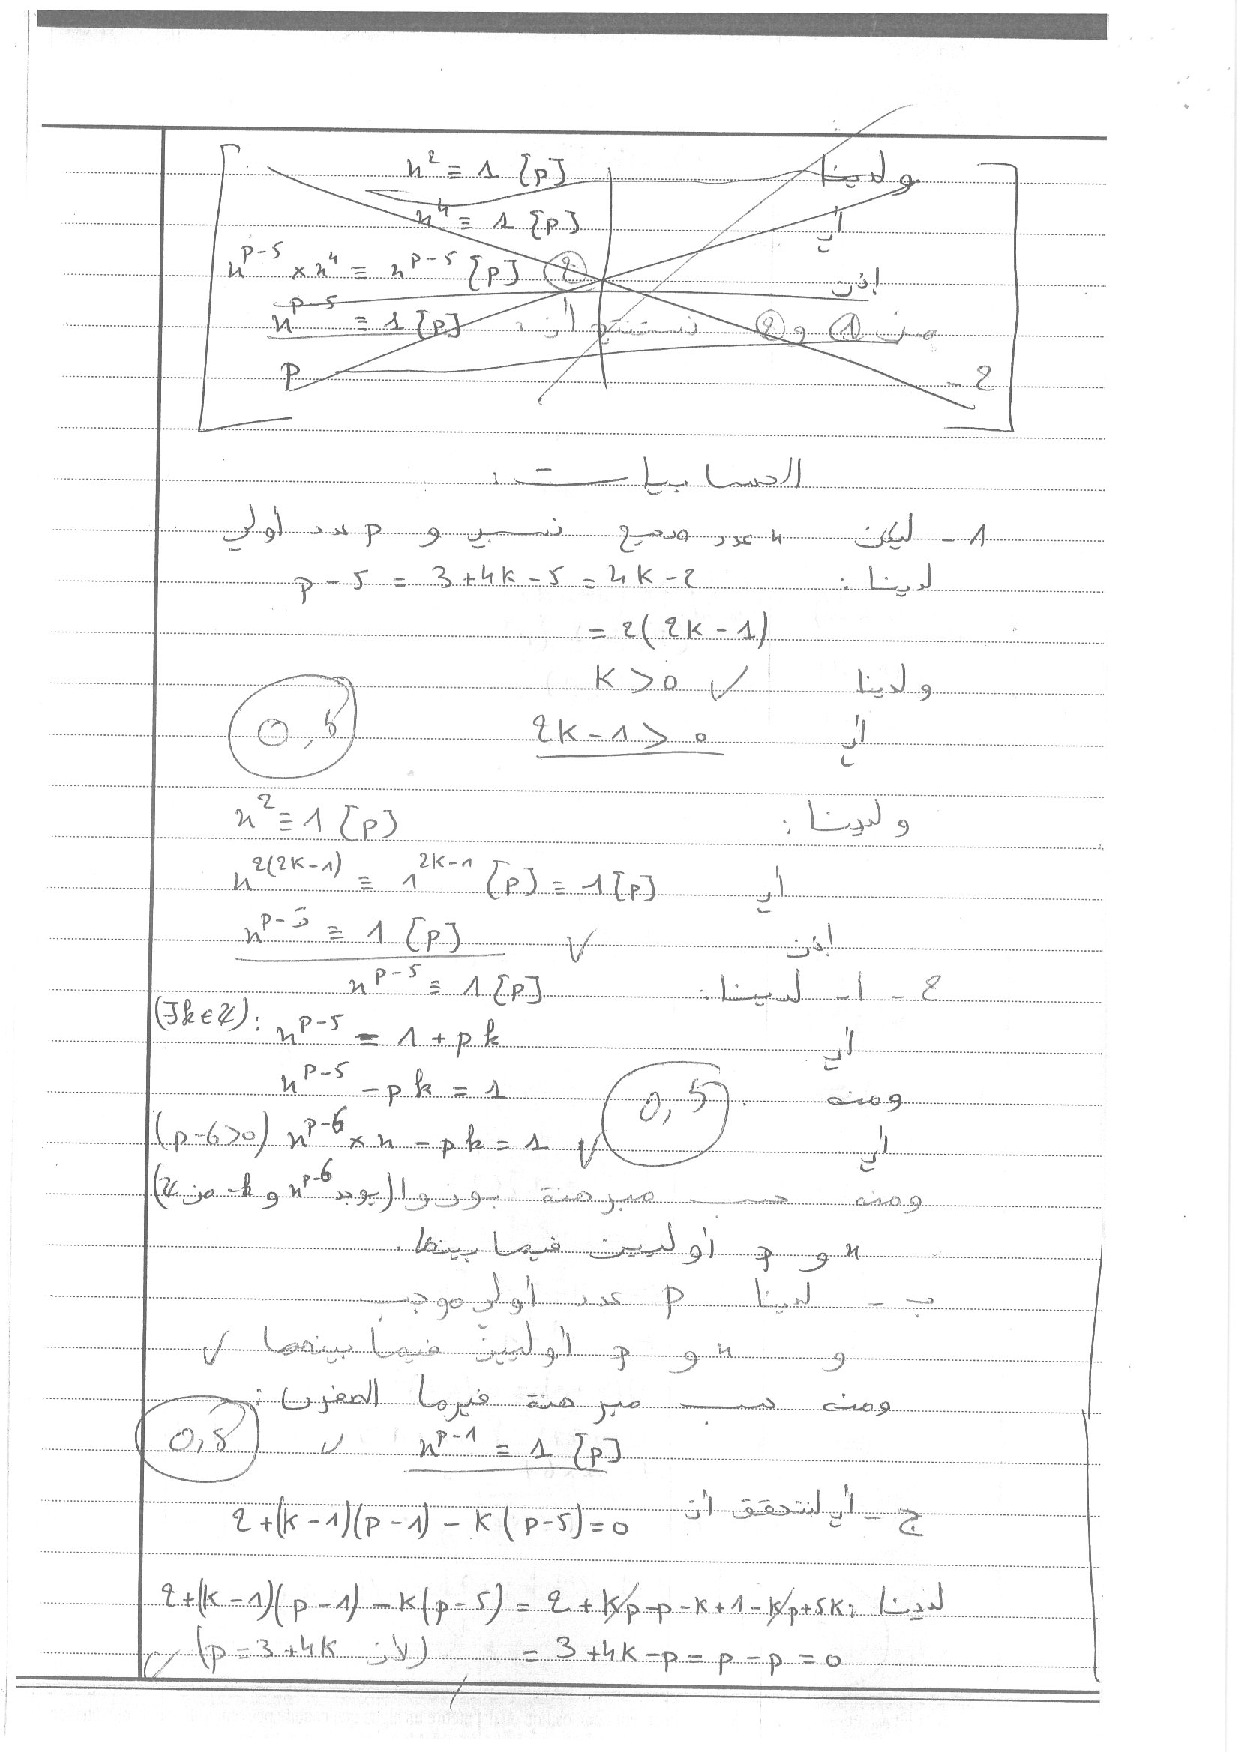 ولدينا n² ≡ 1 [p]
أي n⁴ ≡ 1 [p]
إذن n^{p-5} × n⁴ ≡ n^{p-5} [p] ②
من ① و ② نستنتج أن: n^{p-5} ≡ 1 [p]
2 - p
الحسابيات:
1 - ليكن n عدد صحيح نسبي و p عدد أولي
لدينا: p - 5 = 3 + 4k - 5 = 4k - 2
= 2(2k - 1)
ولدينا k > 0 ✓
أي 2k - 1 > 0
0,5
ولدينا: n² ≡ 1 [p]
أي n^{2(2k-1)} ≡ 1^{2k-1} [p] ≡ 1 [p]
إذن n^{p-5} ≡ 1 [p] ✓
2 - أ - لدينا: n^{p-5} ≡ 1 [p]
أي (∃k ∈ ℤ): n^{p-5} = 1 + pk
ومنه n^{p-5} - pk = 1
0,5
أي (p-6>0) n^{p-6} × n - pk = 1 ✓
ومنه حسب مبرهنة بوزو (يوجد n^{p-6} و -k من ℤ)
n و p أوليين فيما بينهما.
ب - لدينا p عدد أولي موجب
و n و p أوليين فيما بينهما ✓
ومنه حسب مبرهنة فيرما الصغرى:
n^{p-1} ≡ 1 [p] ✓ 0,5
ج - أي لنتحقق أن 2+(k-1)(p-1) - k(p-5) = 0
لدينا: 2+(k-1)(p-1) - k(p-5) = 2+kp-p-k+1-kp+5k
= 3+4k-p = p-p = 0 (لأن p=3+4k) ✓